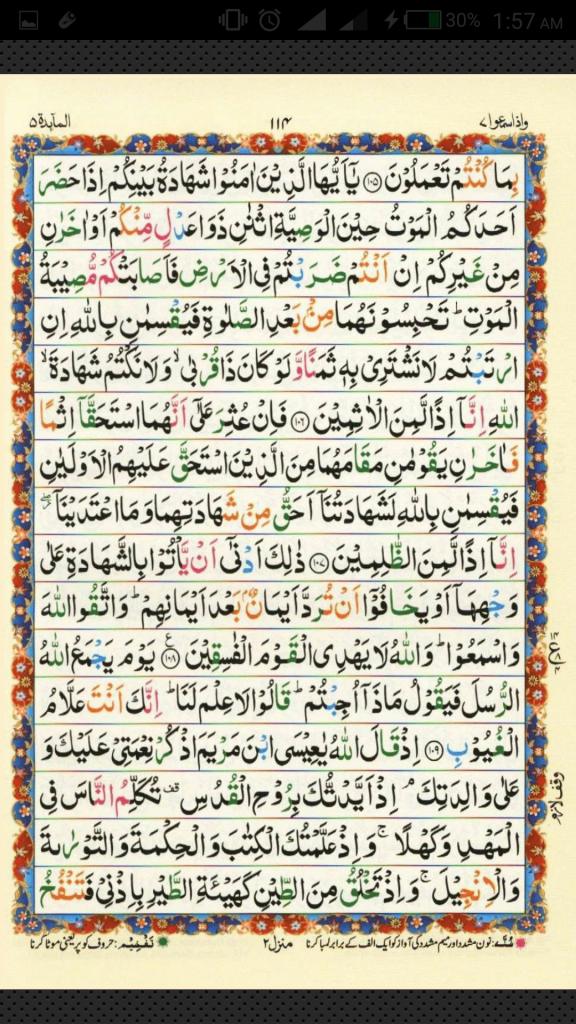 30% 1:57 AM
المآئدة ۵ ۱۱۴ واذاسمعوا ۷
بِمَا كُنْتُمْ تَعْمَلُوْنَ ﴿۱۰۵﴾ يٰۤاَيُّهَا الَّذِيْنَ اٰمَنُوْا شَهَادَةُ بَيْنِكُمْ اِذَا حَضَرَ
اَحَدَكُمُ الْمَوْتُ حِيْنَ الْوَصِيَّةِ اثْنٰنِ ذَوَا عَدْلٍ مِّنْكُمْ اَوْ اٰخَرٰنِ
مِنْ غَيْرِكُمْ اِنْ اَنْتُمْ ضَرَبْتُمْ فِى الْاَرْضِ فَاَصَابَتْكُمْ مُّصِيْبَةُ
الْمَوْتِ ؕ تَحْبِسُوْنَهُمَا مِنْۢ بَعْدِ الصَّلٰوةِ فَيُقْسِمٰنِ بِاللّٰهِ اِنِ
ارْتَبْتُمْ لَا نَشْتَرِىْ بِهٖ ثَمَنًا وَّلَوْ كَانَ ذَا قُرْبٰى ۙ وَلَا نَكْتُمُ شَهَادَةَ ۙ
اللّٰهِ اِنَّاۤ اِذًا لَّمِنَ الْاٰثِمِيْنَ ﴿۱۰۶﴾ فَاِنْ عُثِرَ عَلٰٓى اَنَّهُمَا اسْتَحَقَّاۤ اِثْمًا
فَاٰخَرٰنِ يَقُوْمٰنِ مَقَامَهُمَا مِنَ الَّذِيْنَ اسْتَحَقَّ عَلَيْهِمُ الْاَوْلَيٰنِ
فَيُقْسِمٰنِ بِاللّٰهِ لَشَهَادَتُنَاۤ اَحَقُّ مِنْ شَهَادَتِهِمَا وَمَا اعْتَدَيْنَاۤ ۖ
اِنَّاۤ اِذًا لَّمِنَ الظّٰلِمِيْنَ ﴿۱۰۷﴾ ذٰلِكَ اَدْنٰٓى اَنْ يَّاْتُوْا بِالشَّهَادَةِ عَلٰى
وَجْهِهَاۤ اَوْ يَخَافُوْۤا اَنْ تُرَدَّ اَيْمَانٌۢ بَعْدَ اَيْمَانِهِمْ ؕ وَاتَّقُوا اللّٰهَ
وَاسْمَعُوْا ؕ وَاللّٰهُ لَا يَهْدِى الْقَوْمَ الْفٰسِقِيْنَ ﴿۱۰۸﴾ ع يَوْمَ يَجْمَعُ اللّٰهُ
الرُّسُلَ فَيَقُوْلُ مَاذَاۤ اُجِبْتُمْ ؕ قَالُوْا لَا عِلْمَ لَنَا ؕ اِنَّكَ اَنْتَ عَلَّامُ
الْغُيُوْبِ ﴿۱۰۹﴾ اِذْ قَالَ اللّٰهُ يٰعِيْسَى ابْنَ مَرْيَمَ اذْكُرْ نِعْمَتِىْ عَلَيْكَ وَ
عَلٰى وَالِدَتِكَ ۘ اِذْ اَيَّدْتُّكَ بِرُوْحِ الْقُدُسِ قف تُكَلِّمُ النَّاسَ فِى
وقف لازم
الْمَهْدِ وَكَهْلًا ۚ وَاِذْ عَلَّمْتُكَ الْكِتٰبَ وَالْحِكْمَةَ وَالتَّوْرٰىةَ
وَالْاِنْجِيْلَ ۚ وَاِذْ تَخْلُقُ مِنَ الطِّيْنِ كَهَيْئَةِ الطَّيْرِ بِاِذْنِىْ فَتَنْفُخُ
غنّہ: نون مشدد اور میم مشدد کی آواز کو ایک الف کے برابر لمبا کرنا منزل ۲ تفخیم: حروف کو پُر یعنی موٹا کرنا